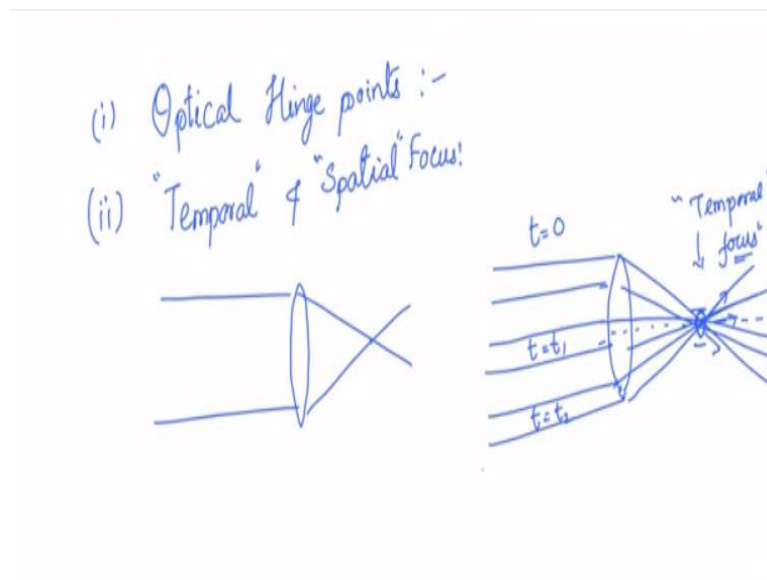 (i) Optical Hinge points :-
(ii) "Temporal" & "Spatial" Focus:
t=0
"Temporal"
focus"
t=t₁
t=t₂